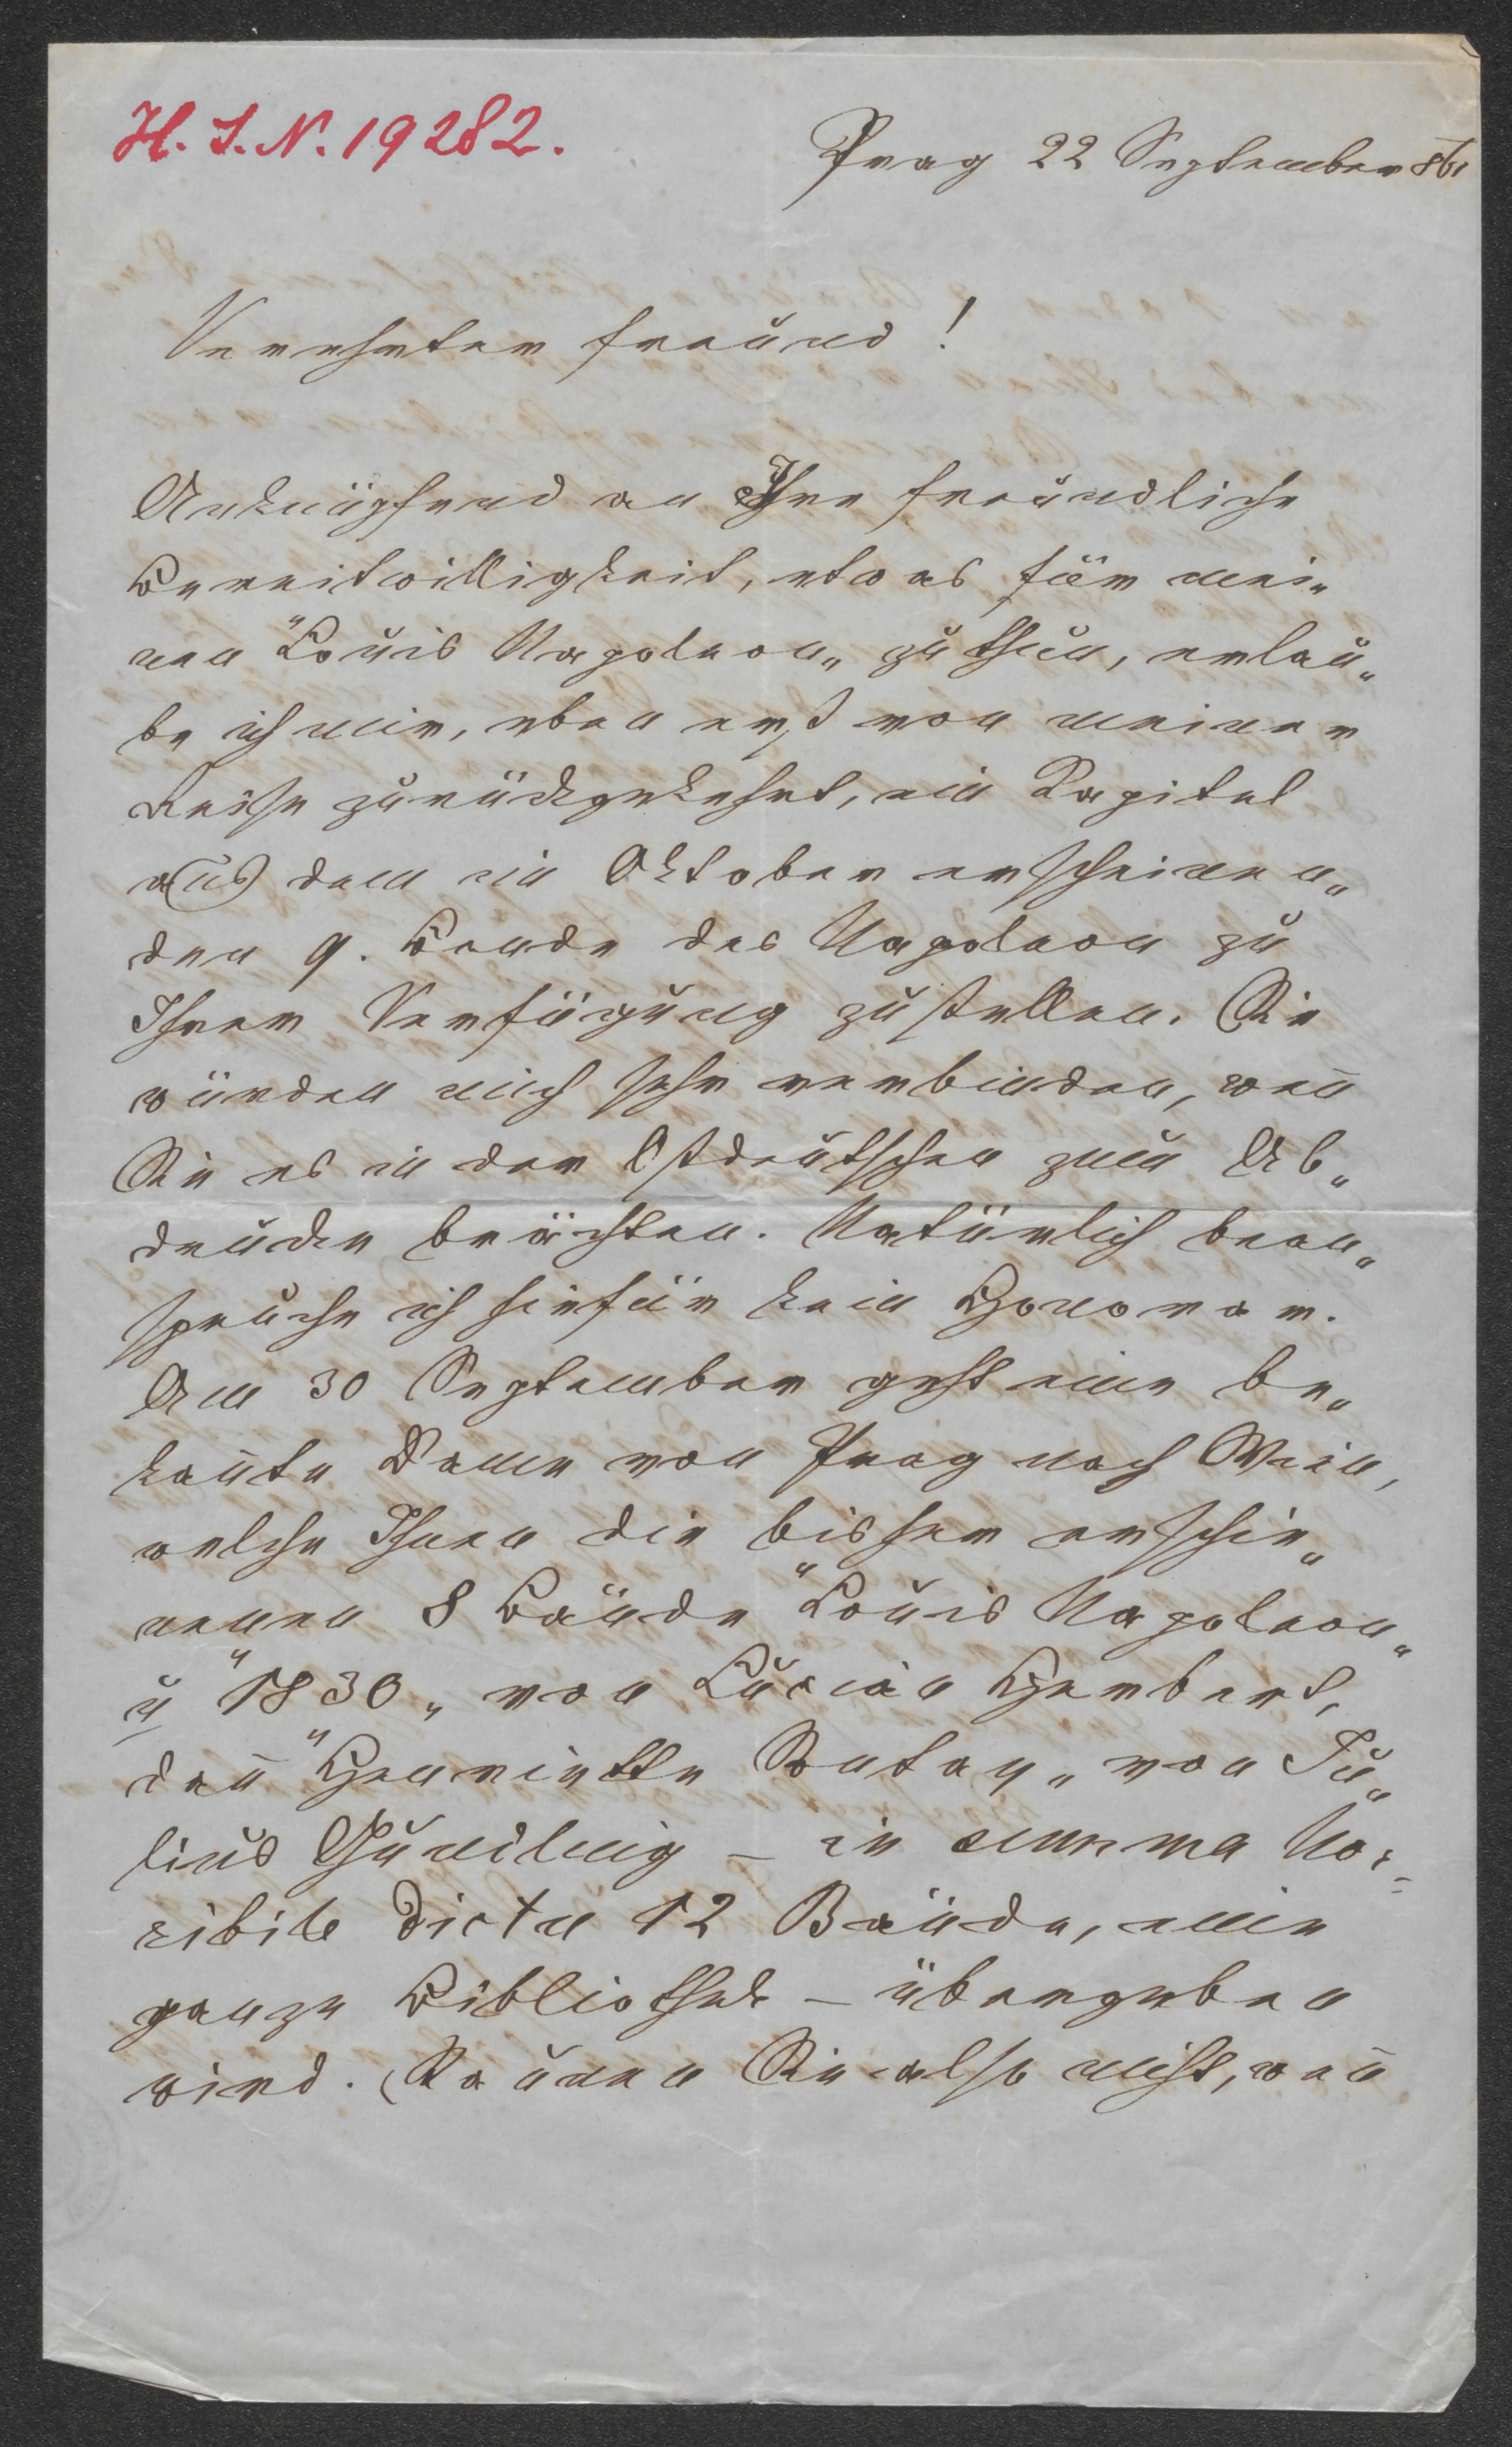 H. I. N. 19282.
Prag 22 September 861
Verehrter Freund!
Anknüpfend an Ihre freundliche
Bereitwilligkeit, etwas für mei„
nen "Louis Napoleon„ zu thun, erlau„
be ich mir, eben erst von meiner
Reise zurückgekehrt, ein Kapitel
aus dem im Oktober erscheinen„
den 9. Bande des Napoleon zu
Ihrer Verfügung zu stellen. Sie
würden mich sehr verbinden, wen̄
Sie es in der Ostdeutschen zum Ab„
drucke brächten. Natürlich bean„
spruche ich hiefür kein Honorar.
Am 30 September geht eine be„
kan̄te Dame von Prag nach Wien,
welche Ihnen die bisher erschie„
nenen 8 Bände "Louis Napoleon„
u "1830„ von Lucian Herbert,
dan̄ "Henriette Sontag„ von Ju„
lius Gundling – in summa hor=
ribile dictu 12 Bände, eine
ganze Bibliothek – übergeben
wird. Staunen Sie also nicht, wen̄